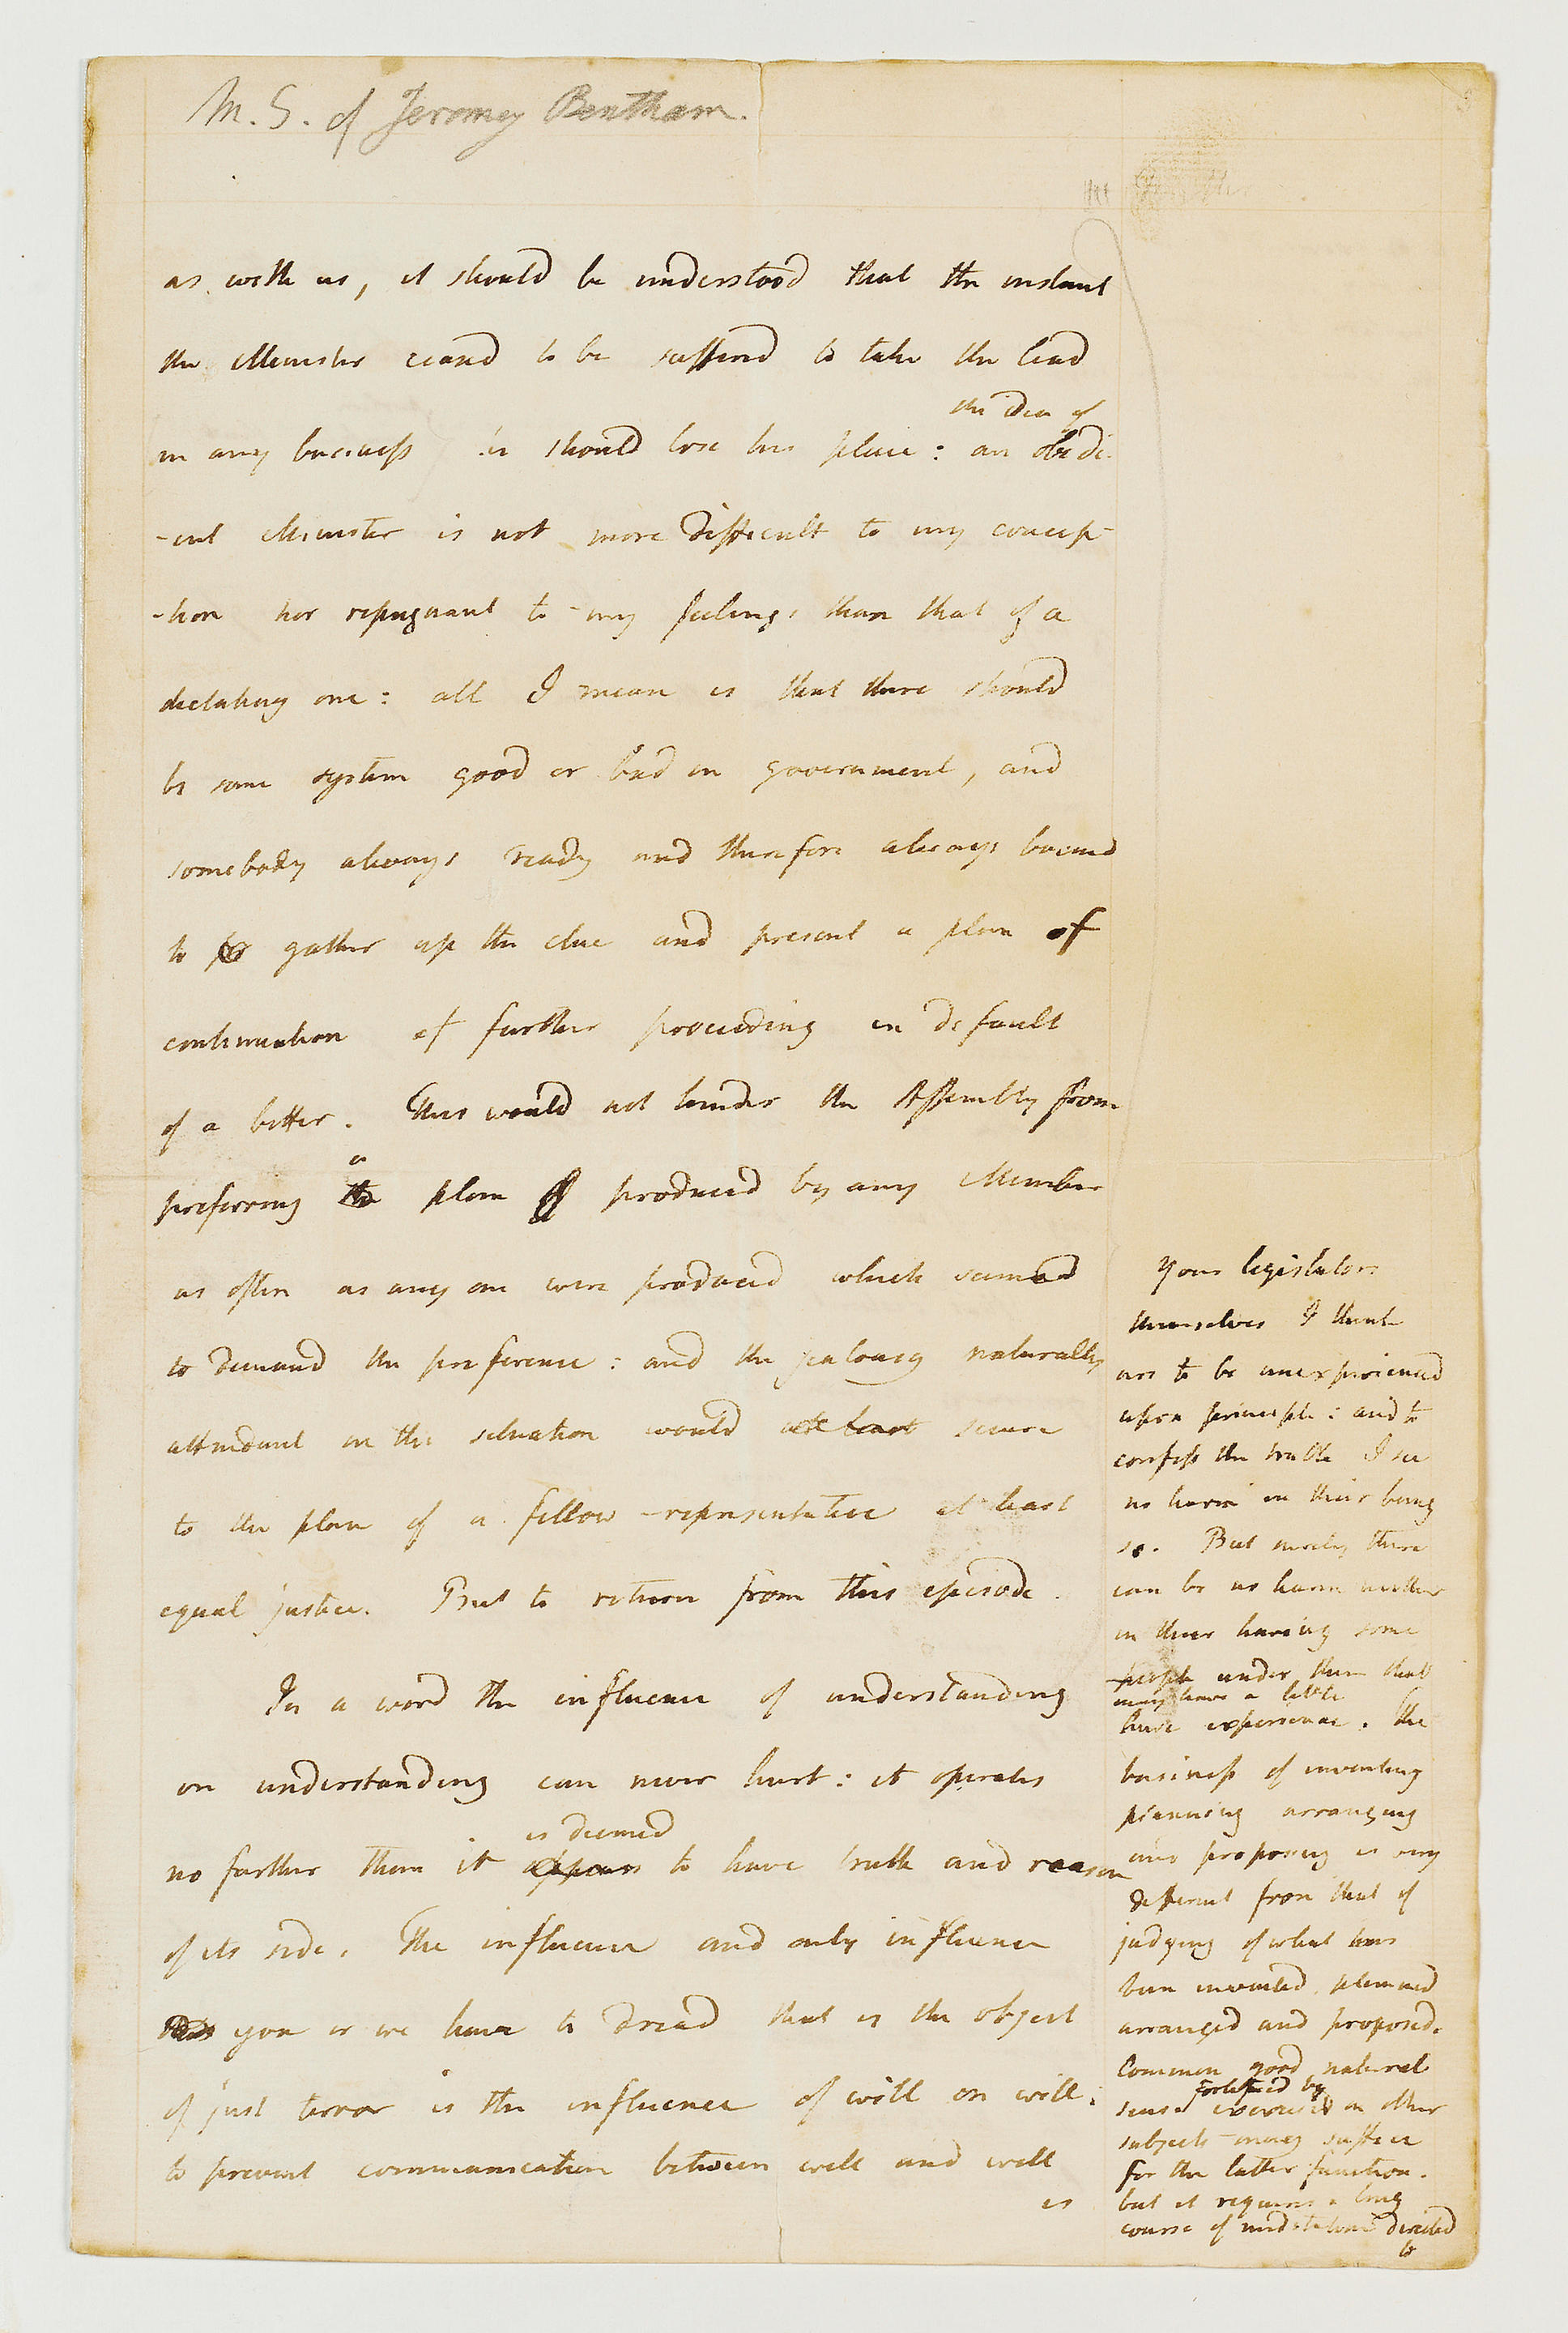 M.S. of Jeromey Bentham.
as with us, it should be understood that the instant
the Minister ceased to be suffered to take the lead
the idea of
in any business he should lose his place: an obedi-
-ent Minister is not more difficult to my concep-
-tion nor repugnant to my feelings than that of a
dictating one: all I mean is that there should
be some system good or bad in government, and
somebody always ready and therefore always bound
to gather up the clue and present a plan of
continuation of further proceeding in default
of a better. This would not hinder the Assembly from
a
preferring the plan produced by any Member
as often as any one were produced which seemed
to demand the preference: and the jealousy naturally
attendant on the situation would at least secure
to the plan of a fellow-representative at least
equal justice. But to return from this episode.
In a word the influence of understanding
on understanding can never hurt: it operates
is deemed
no farther than it appears to have truth and reason
of its side. The influence and only influence
you or we have to dread that is the object
of just terror is the influence of will on will:
to prevent communication between will and will
is
Your legislators
themselves I think
are to be unexperienced
upon principle: and to
confess the truth I see
no harm in their being
so. But surely there
can be no harm neither
in their having some
people under them that
may have a little
have experience. The
business of inventing
planning arranging
and proposing is very
different from that of
judging of what has
been invented planned
arranged and proposed.
Common good natural
fortified by
sense exercised on other
subjects may suffice
for the latter function.
but it requires a long
course of meditation directed
to